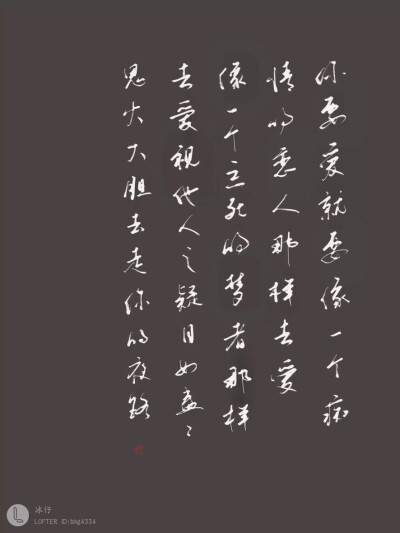 你要爱就要像一个痴
情的恋人那样去爱
像一个忘死的梦者那样
去爱视他人之疑目如盏〻
鬼火大胆去走你的夜路
冰仔
LOFTER ID:bmg4334